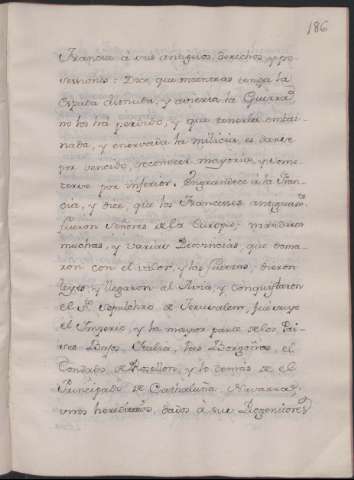 186
Francia à sus antiguos derechos y po-
sesiones: Dice, que mientras tenga la
Espada desnuda, y avierta la Guerra,
no los ha perdido, y que tenerla embai-
nada, y enervada la milicia, es darse
por vencido, reconocer mayoria, y some-
terse por inferior. Engrandece à la Fran-
cia, y dice, que los Franceses antiguam.te
fueron Señores de la Europa, mandaron
muchas, y varias Provincias, que toma-
ron con el valor, y las fuerzas, dieron
leyes, y llegaron al Asia, y conquistaron
el S. Sepulchro de Jerusalem, fué suyo
el Imperio, y la mayor parte de los Paí-
ses Bajos, Italia, las Borgoñas, el
Condado de Rosellon, y lo demás de el
Principado de Cathaluña, Navarra,
unos heredados, dados à sus Progenitores